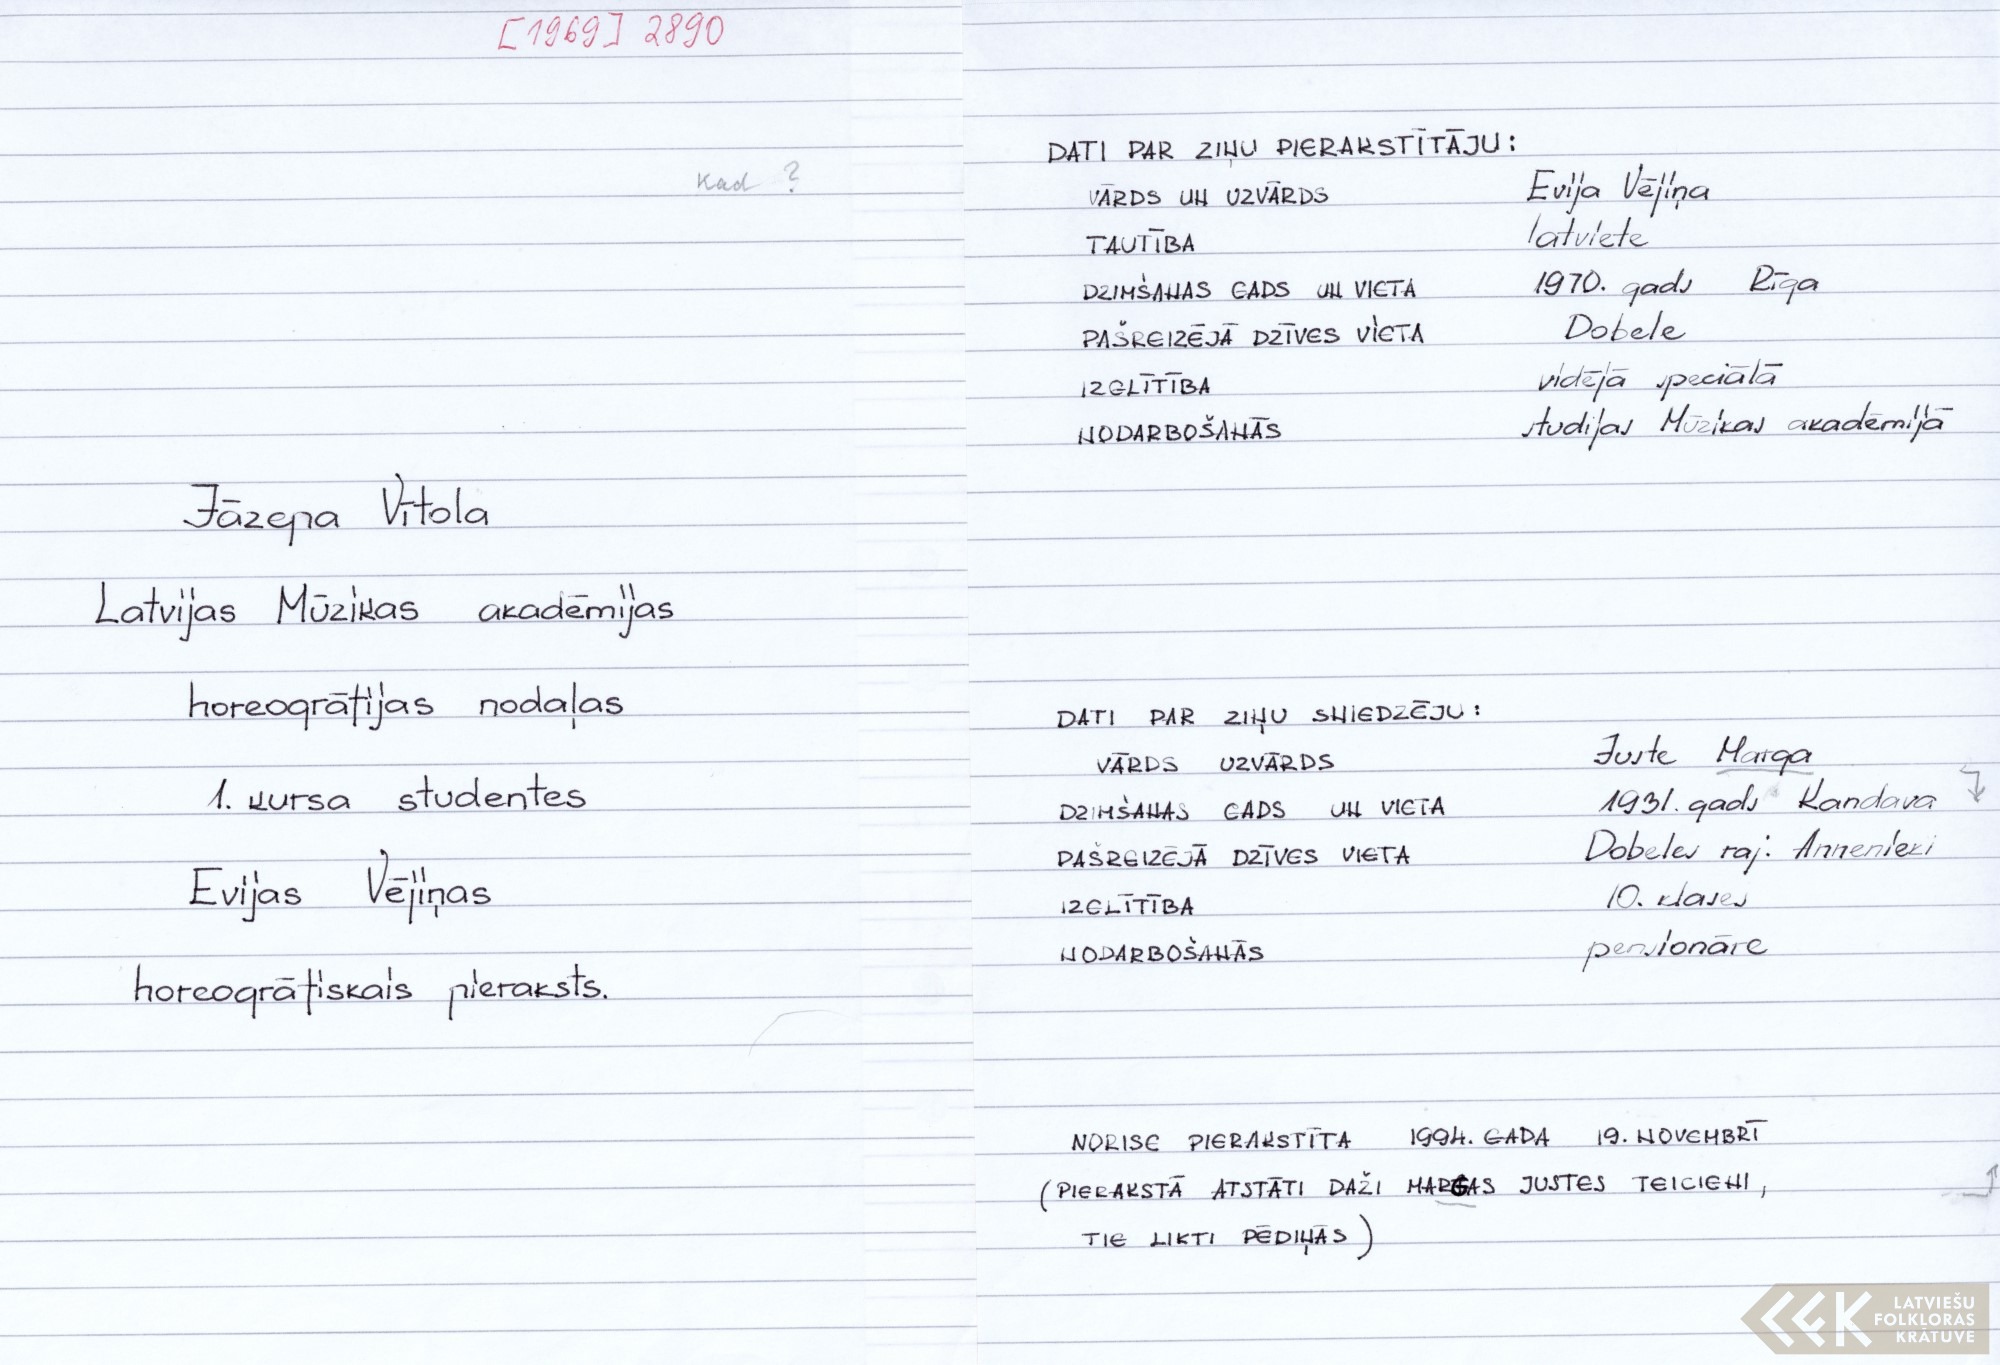 [1969] 2890
Kad ?
Jāzepa Vītola
Latvijas Mūzikas akadēmijas
horeogrāfijas nodaļas
1. kursa studentes
Evijas Vējiņas
horeogrāfiskais pieraksts.
DATI PAR ZIŅU PIERAKSTĪTĀJU:
VĀRDS UN UZVĀRDS Evija Vējiņa
TAUTĪBA latviete
DZIMŠANAS GADS UN VIETA 1970. gads Rīga
PAŠREIZĒJĀ DZĪVES VIETA Dobele
IZGLĪTĪBA vidējā speciālā
NODARBOŠANĀS studijas Mūzikas akadēmijā
DATI PAR ZIŅU SNIEDZĒJU:
VĀRDS UZVĀRDS Juste Marga
DZIMŠANAS GADS UN VIETA 1931. gads Kandava
PAŠREIZĒJĀ DZĪVES VIETA Dobeles raj. Annenieki
IZGLĪTĪBA 10. klases
NODARBOŠANĀS pensionāre
NORISE PIERAKSTĪTA 1994. GADA 19. NOVEMBRĪ
(PIERAKSTĀ ATSTĀTI DAŽI MARGAS JUSTES TEICIENI,
TIE LIKTI PĒDIŅĀS)
LATVIEŠU
FOLKLORAS
KRĀTUVE